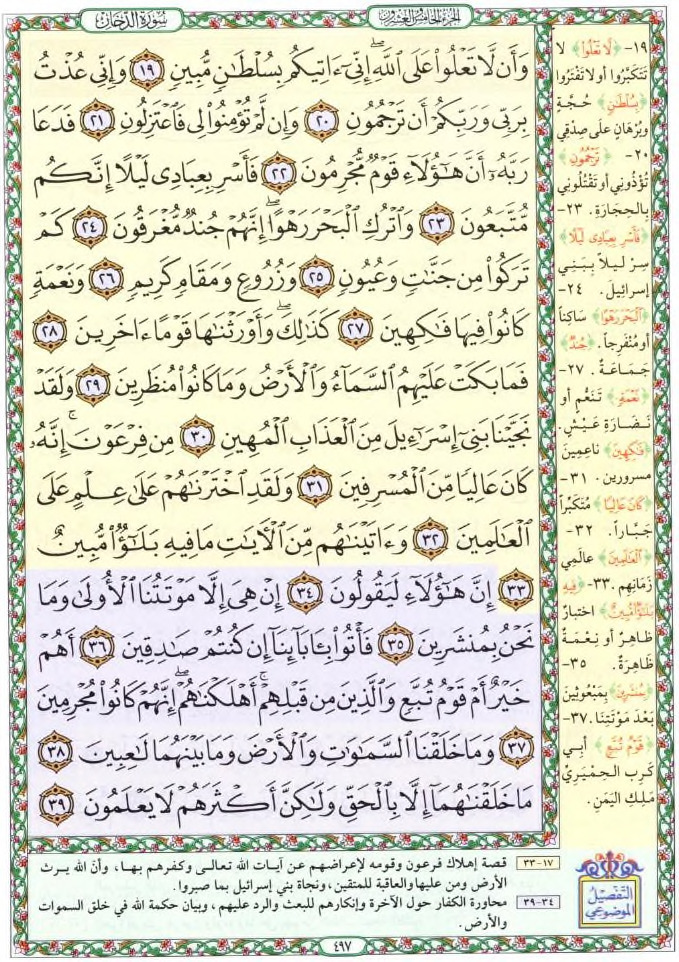 الجزء الخامس والعشرون
سورة الدخان
وَأَن لَّا تَعْلُوا۟ عَلَى ٱللَّهِ ۖ إِنِّىٓ ءَاتِيكُم بِسُلْطَـٰنٍ مُّبِينٍ ١٩ وَإِنِّى عُذْتُ
بِرَبِّى وَرَبِّكُمْ أَن تَرْجُمُونِ ٢٠ وَإِن لَّمْ تُؤْمِنُوا۟ لِى فَٱعْتَزِلُونِ ٢١ فَدَعَا
رَبَّهُۥٓ أَنَّ هَـٰٓؤُلَآءِ قَوْمٌ مُّجْرِمُونَ ٢٢ فَأَسْرِ بِعِبَادِى لَيْلًا إِنَّكُم
مُّتَّبَعُونَ ٢٣ وَٱتْرُكِ ٱلْبَحْرَ رَهْوًا ۖ إِنَّهُمْ جُندٌ مُّغْرَقُونَ ٢٤ كَمْ
تَرَكُوا۟ مِن جَنَّـٰتٍ وَعُيُونٍ ٢٥ وَزُرُوعٍ وَمَقَامٍ كَرِيمٍ ٢٦ وَنَعْمَةٍ
كَانُوا۟ فِيهَا فَـٰكِهِينَ ٢٧ كَذَٰلِكَ ۖ وَأَوْرَثْنَـٰهَا قَوْمًا ءَاخَرِينَ ٢٨
فَمَا بَكَتْ عَلَيْهِمُ ٱلسَّمَآءُ وَٱلْأَرْضُ وَمَا كَانُوا۟ مُنظَرِينَ ٢٩ وَلَقَدْ
نَجَّيْنَا بَنِىٓ إِسْرَٰٓءِيلَ مِنَ ٱلْعَذَابِ ٱلْمُهِينِ ٣٠ مِن فِرْعَوْنَ ۚ إِنَّهُۥ
كَانَ عَالِيًا مِّنَ ٱلْمُسْرِفِينَ ٣١ وَلَقَدِ ٱخْتَرْنَـٰهُمْ عَلَىٰ عِلْمٍ عَلَى
ٱلْعَـٰلَمِينَ ٣٢ وَءَاتَيْنَـٰهُم مِّنَ ٱلْـَٔايَـٰتِ مَا فِيهِ بَلَـٰٓؤٌا۟ مُّبِينٌ
٣٣ إِنَّ هَـٰٓؤُلَآءِ لَيَقُولُونَ ٣٤ إِنْ هِىَ إِلَّا مَوْتَتُنَا ٱلْأُولَىٰ وَمَا
نَحْنُ بِمُنشَرِينَ ٣٥ فَأْتُوا۟ بِـَٔابَآئِنَآ إِن كُنتُمْ صَـٰدِقِينَ ٣٦ أَهُمْ
خَيْرٌ أَمْ قَوْمُ تُبَّعٍ وَٱلَّذِينَ مِن قَبْلِهِمْ ۚ أَهْلَكْنَـٰهُمْ ۖ إِنَّهُمْ كَانُوا۟ مُجْرِمِينَ
٣٧ وَمَا خَلَقْنَا ٱلسَّمَـٰوَٰتِ وَٱلْأَرْضَ وَمَا بَيْنَهُمَا لَـٰعِبِينَ ٣٨
مَا خَلَقْنَـٰهُمَآ إِلَّا بِٱلْحَقِّ وَلَـٰكِنَّ أَكْثَرَهُمْ لَا يَعْلَمُونَ ٣٩
١٩- ﴿لَّا تَعْلُوا۟﴾ لا
تَتَكَبَّرُوا أو لا تَفْتَرُوا
﴿بِسُلْطَـٰنٍ﴾ حُجَّةٍ
وبُرْهَانٍ عَلَى صِدْقِي
٢٠- ﴿تَرْجُمُونِ﴾
تُؤْذُونِي أو تَقْتُلُونِي
بِالحِجَارَةِ. ٢٣-
﴿فَأَسْرِ بِعِبَادِى لَيْلًا﴾
سِرْ ليلاً بِبَنِي
إسرائيلَ. ٢٤-
﴿ٱلْبَحْرَ رَهْوًا﴾ ساكِناً
أو مُنْفَرِجاً. ﴿جُندٌ﴾
جَمَاعَةٌ. ٢٧-
﴿نَعْمَةٍ﴾ تَنَعُّمٍ أو
نَضَارَةِ عَيْشٍ.
﴿فَـٰكِهِينَ﴾ ناعِمِينَ
مسرورين. ٣١-
﴿كَانَ عَالِيًا﴾ مُتَكَبِّراً
جَبَّاراً. ٣٢-
﴿ٱلْعَـٰلَمِينَ﴾ عالَمِي
زَمَانِهِم. ٣٣- ﴿فِيهِ
بَلَـٰٓؤٌا۟ مُّبِينٌ﴾ اختبارٌ
ظاهِرٌ أو نِعْمَةٌ
ظاهِرَةٌ. ٣٥-
﴿بِمُنشَرِينَ﴾ بِمَبْعُوثِينَ
بَعْدَ مَوْتَتِنَا. ٣٧-
﴿قَوْمُ تُبَّعٍ﴾ أبِي
كَرِبٍ الحِمْيَرِيِّ
مَلِكِ اليَمَنِ.
التفصيل
الموضوعي
١٧-٣٣ قصة إهلاك فرعون وقومه لإعراضهم عن آيات الله تعالى وكفرهم بها، وأن الله يرث
الأرض ومن عليها والعاقبة للمتقين، ونجاة بني إسرائيل بما صبروا.
٣٤-٣٩ محاورة الكفار حول الآخرة وإنكارهم للبعث والرد عليهم، وبيان حكمة الله في خلق السموات
والأرض.
٤٩٧